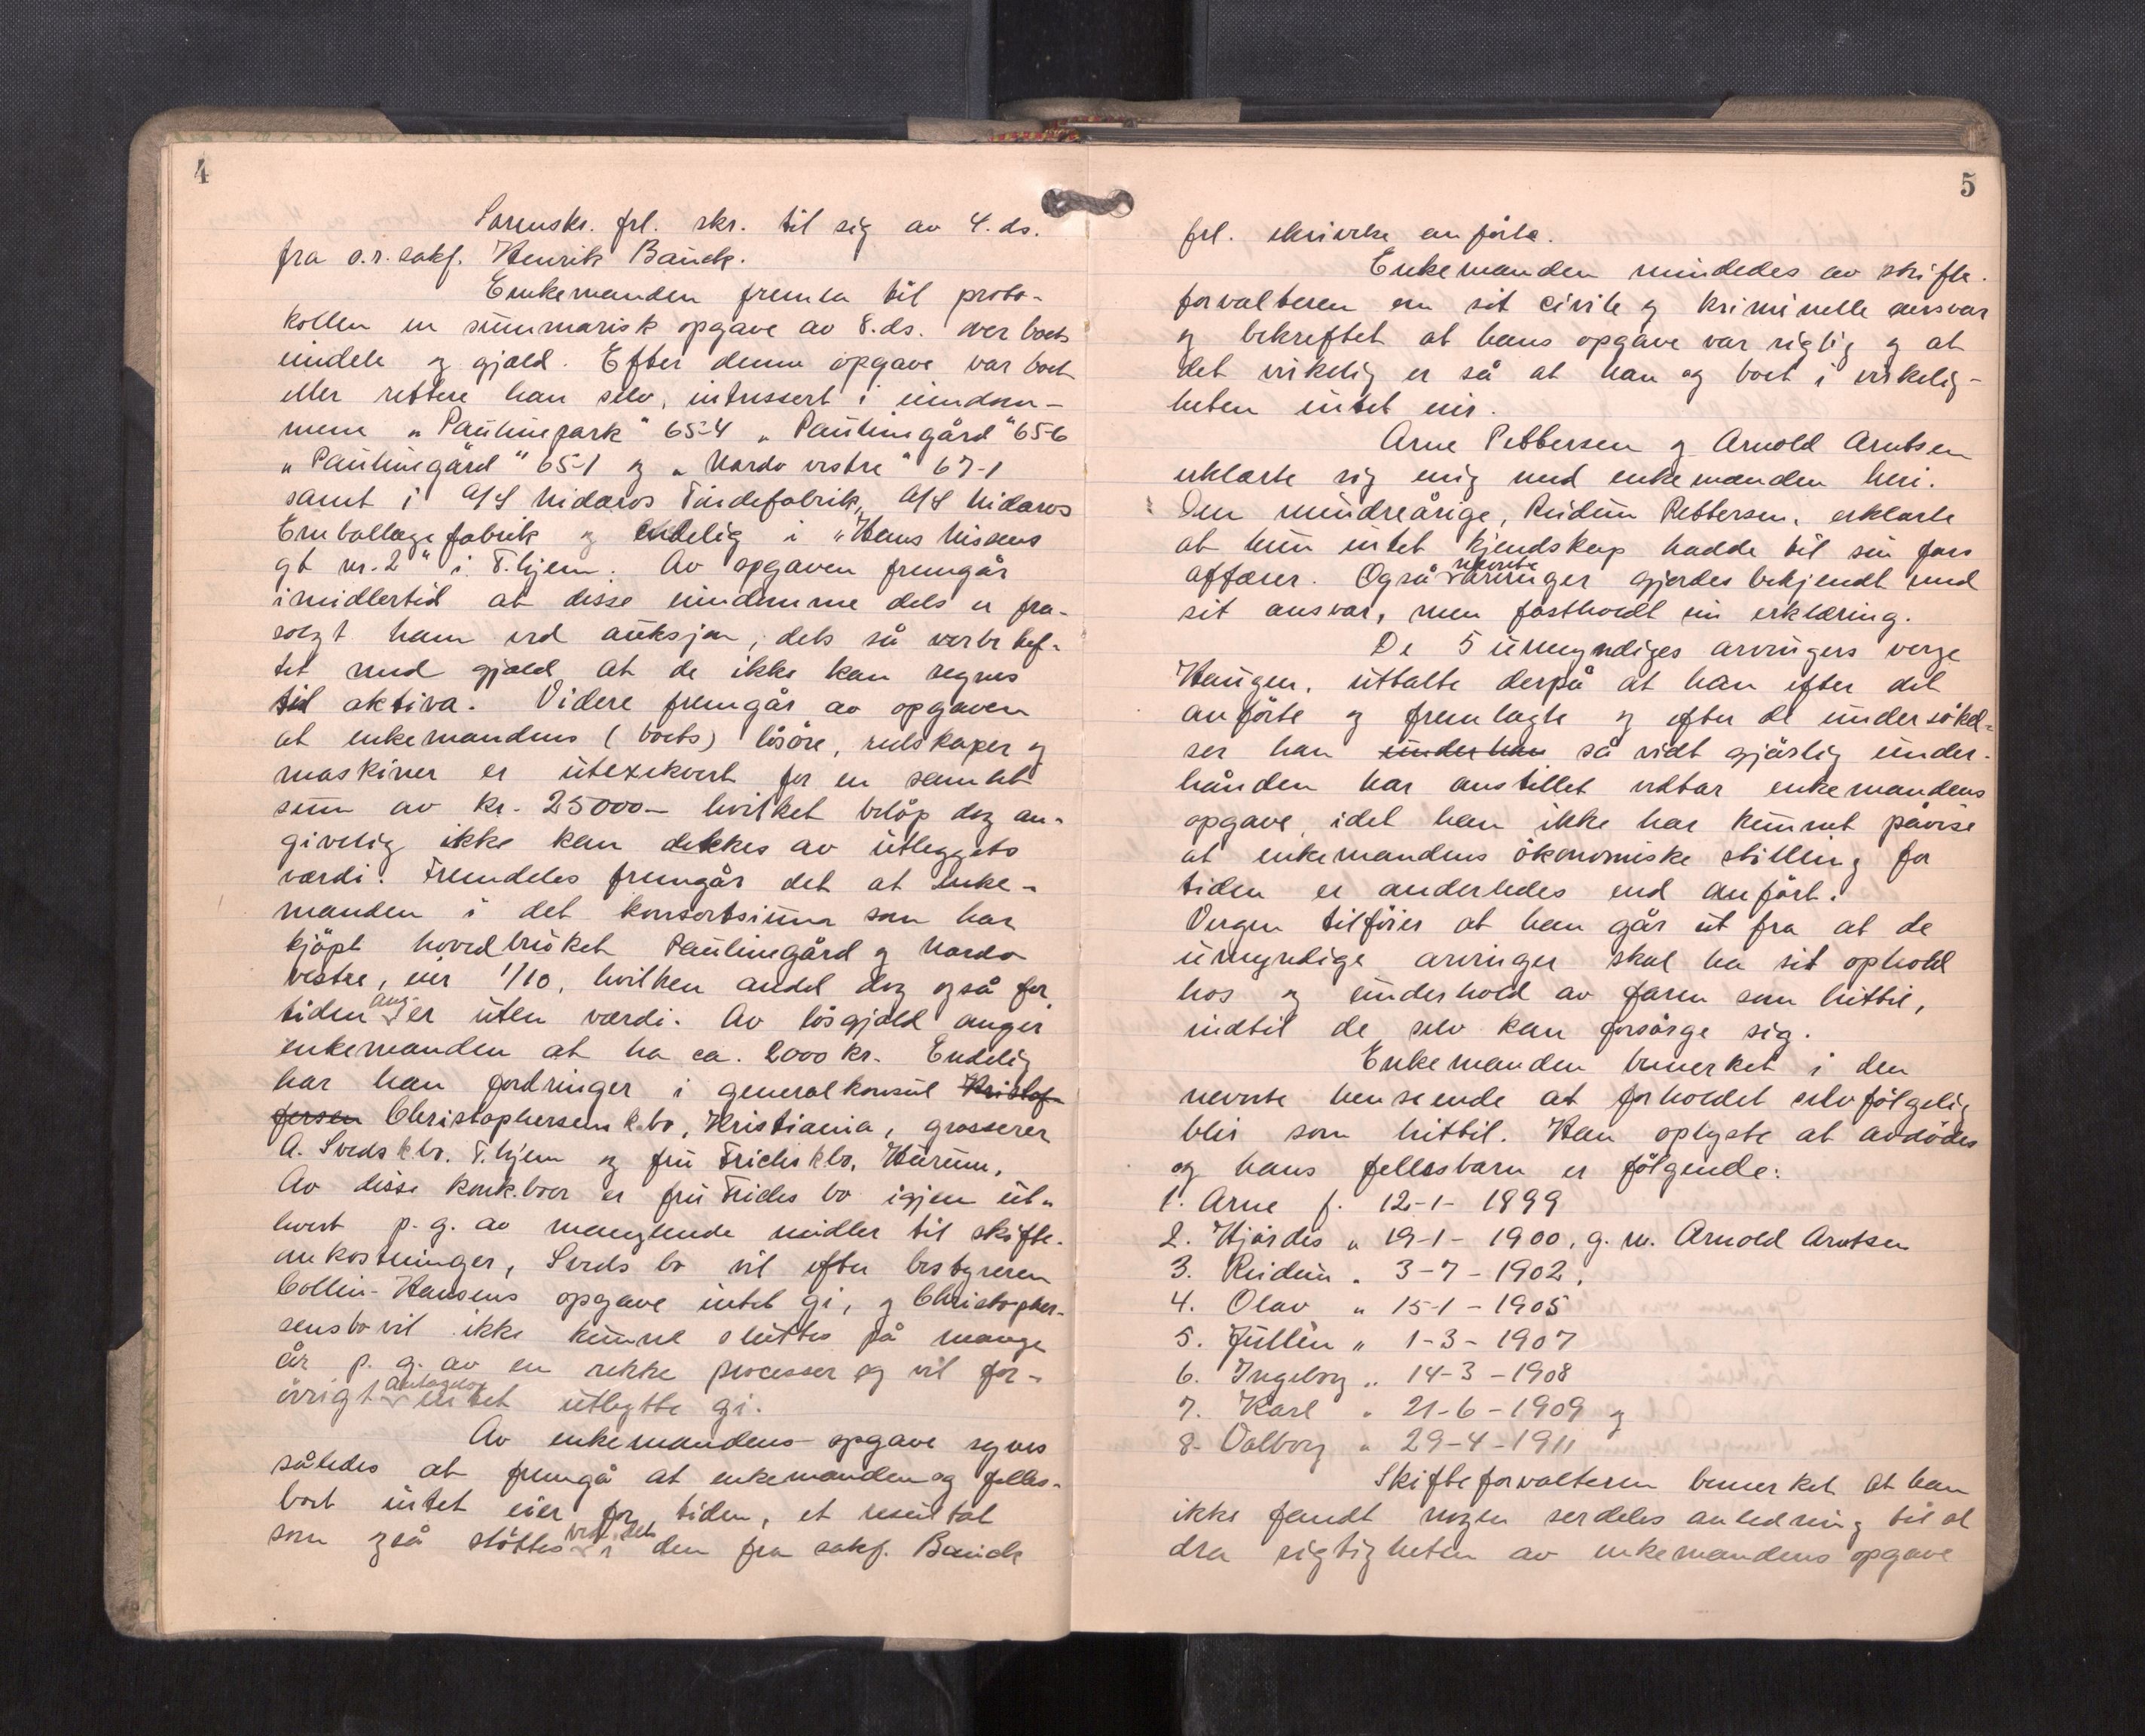 4
Sorenskr. frl. skr. til sig av 4. ds.
fra o.r.sakf. Henrik Bauck.
Enkemanden fremla til proto-
kollen en summarisk opgave av 8. ds. over boets
eiendele og gjæld. Efter denne opgave var boet
eller rettere han selv, intressert i eiendom-
mene "Paulinepark" 65-4 "Paulinegård" 65-6
"Paulinegård" 65-1 og "Nardo vestre" 67-1
samt i A/S Nidaros Tøndefabrik, A/S Nidaros
Emballagefabrik og endelig i "Hans Nissens
gt nr. 2" i T.hjem. Av opgaven fremgår
imidlertid at disse eiendomme dels er fra-
solgt ham ved auksjon, dels så verbehef-
tet med gjæld at de ikke kan regnes
til aktiva. Videre fremgår av opgaven
at enkemandens (boets) løsøre, redskaper og
maskiner er utexekvert for en samlet
sum av kr. 25000- hvilket beløp dog an-
givelig ikke kan dekkes av utleggets
værdi. Fremdeles fremgår det at enke-
manden i det konsortsium som har
kjøpt hovedbruket Paulinegård og Nardo
vestre, eier 1/10, hvilken andel dog også for
tiden ang. er uten værdi. Av løsgjæld angir
enkemanden at ha ca. 2000 kr. Endelig
har han fordringer i generalkonsul Kristof-
fersen Christophersens k.bo, Kristiania, grosserer
A. Sveds k.bo. T.hjem og fru Frichs k.bo, Hurum.
Av disse konk.boer er fru Frichs bo igjen ut-
levert p.g. av manglende midler til skifte-
omkostninger, Sveds bo vil efter bestyreren
Collin-Hansens opgave intet gi, og Christopher-
sens bo vil ikke kunne sluttes på mange
år p.g. av en rekke processer og vil for-
øvrigt antagelig intet utbytte gi.
Av enkemandens opgave synes
således at fremgå at enkemanden og felles-
boet intet eier for tiden, et resultat
som også støttes ved det i den fra sakf. Bauck
5
frl. skrivelse anførte.
Enkemanden mindedes av skifte-
forvalteren om sit civile og kriminelle ansvar
og bekreftet at hans opgave var rigtig og at
det virkelig er så at han og boet i virkelig-
heten intet eier.
Arne Pettersen og Arnold Arntsen
erklærte sig enig med enkemanden heri.
Den mindreårige, Reidun Pettersen, erklærte
at hun intet kjendskap hadde til sin fars
affærer. Også nevnte arvinger gjordes bekjendt med
sit ansvar, men fastholdt sin erklæring.
De 5 umyndiges arvingers verge
Haugen, uttalte derpå at han efter det
anførte og fremlagte og efter de undersøkel-
ser han underhan så vidt gjørlig under-
hånden har anstillet vedtar enkemandens
opgave, idet han ikke har kunnet påvise
at enkemandens økonomiske stilling for
tiden er anderledes end anført.
Vergen tilføier at han går ut fra at de
umyndige arvinger skal ha sit ophold
hos og underhold av faren som hittil,
indtil de selv kan forsørge sig.
Enkemanden bemerket i den
nevnte henseende at forholdet selvfølgelig
blir som hittil. Han oplyste at avdødes
og hans fellesbarn er følgende:
1. Arne f. 12-1- 1899
2. Hjørdis " 19-1- 1900, g.m. Arnold Arntsen
3. Reidun " 3-7-1902,
4. Olav " 15-1-1905
5. Jullin " 1-3-1907
6. Ingeborg " 14-3-1908
7. Karl " 21-6-1909 og
8. Valborg " 29-4-1911
Skifteforvalteren bemerket at han
ikke fandt nogen serdeles anledning til at
dra rigtigheten av enkemandens opgave